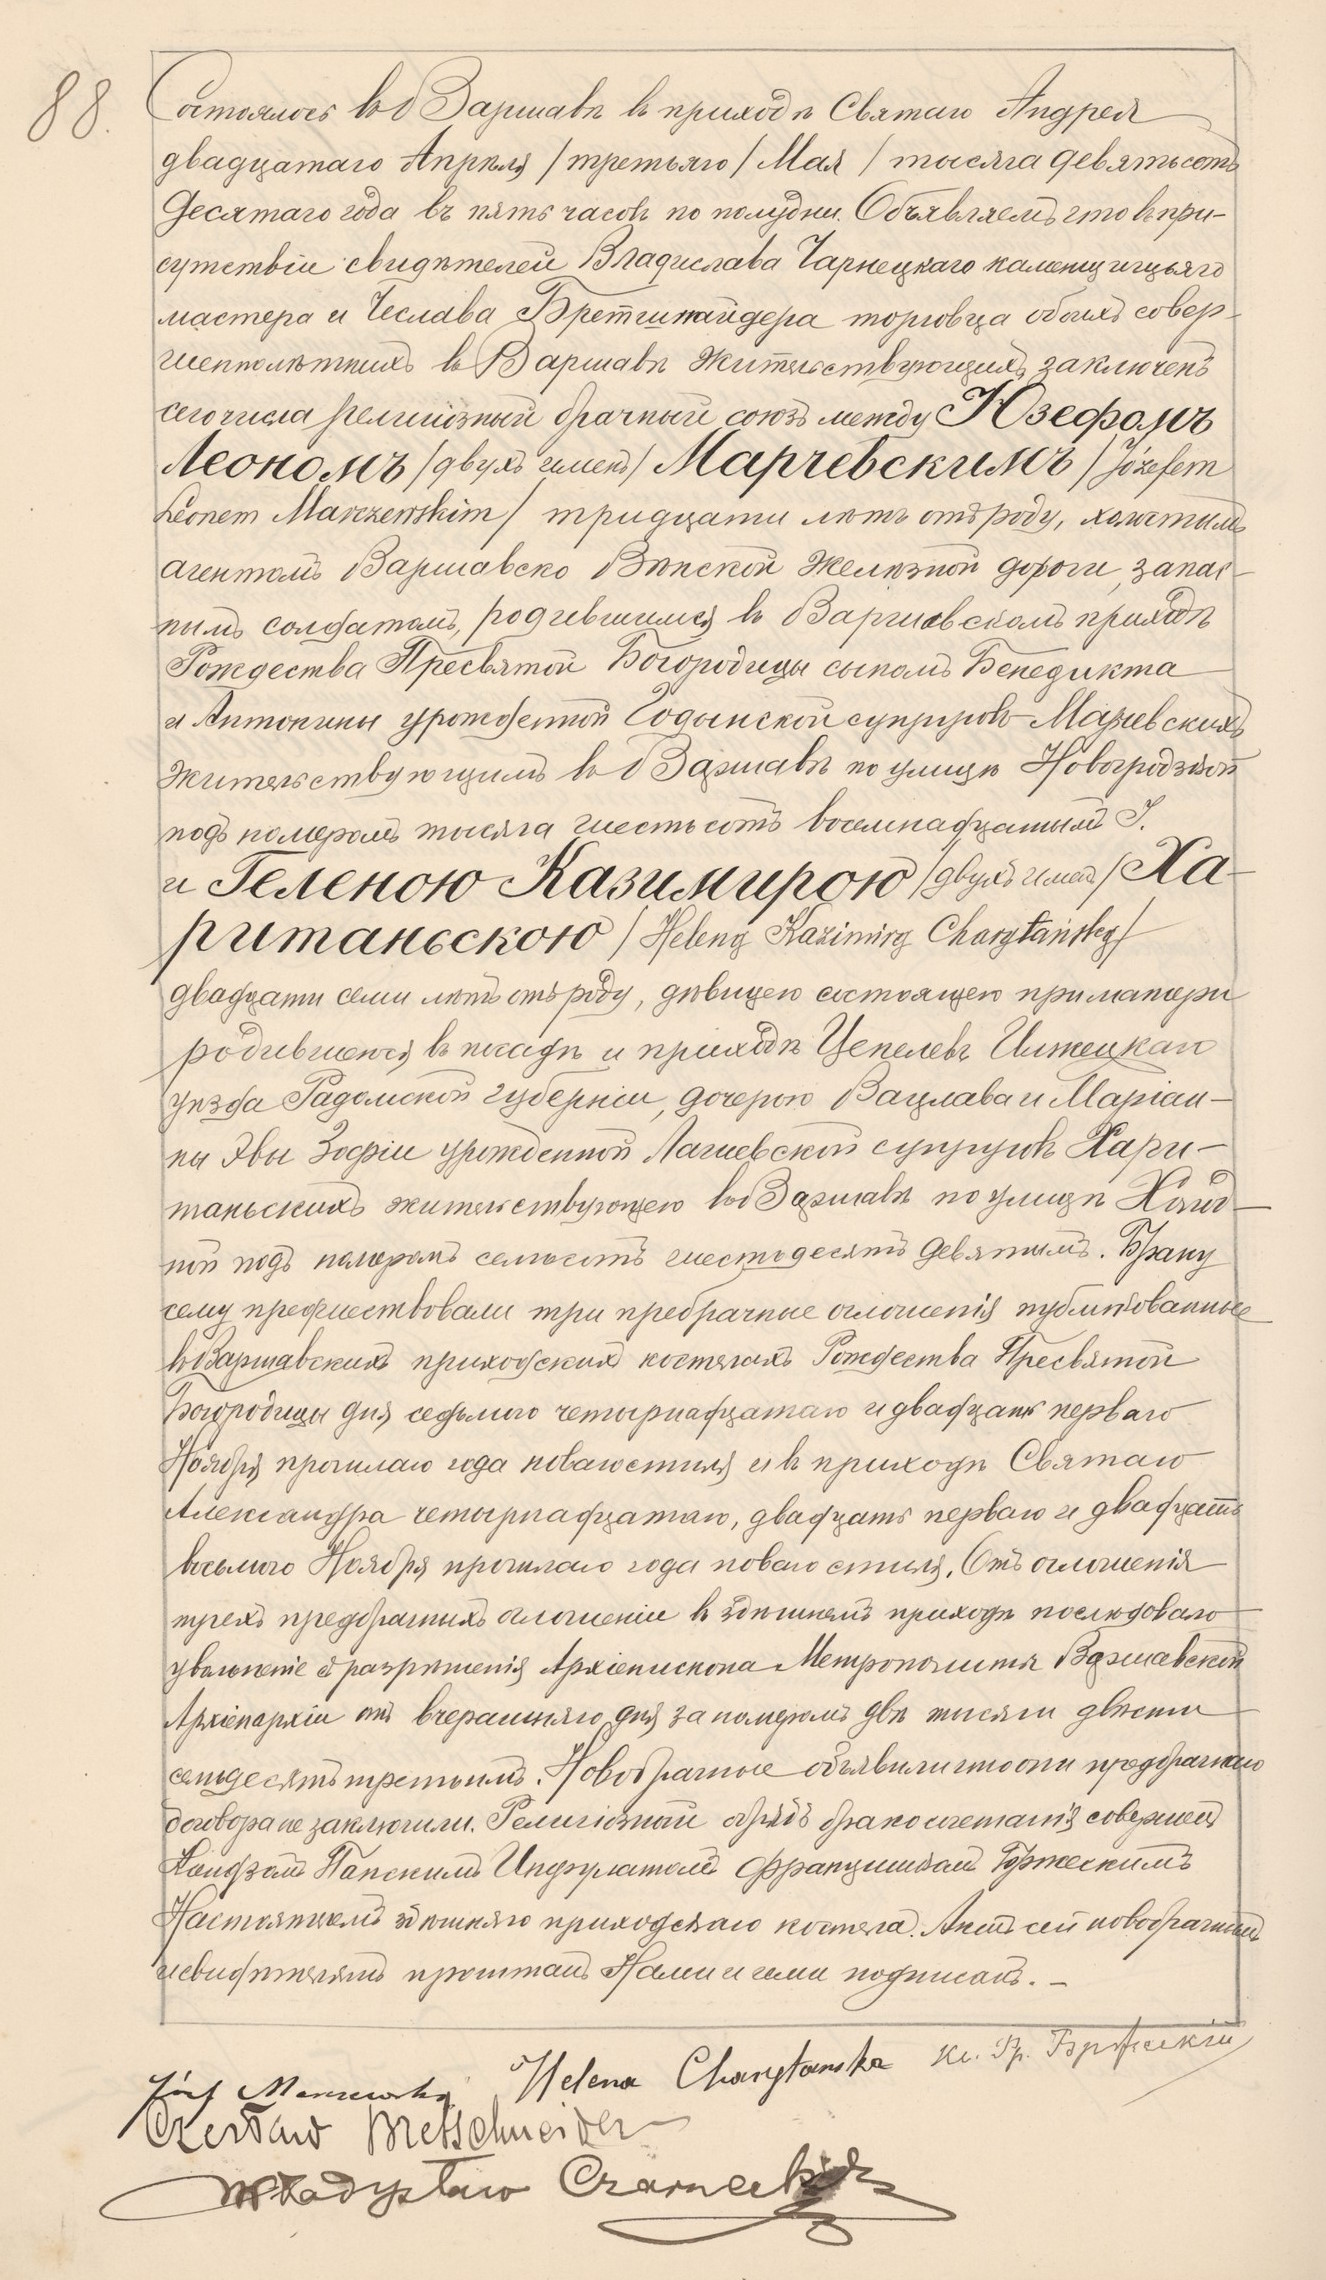 88.
Состоялось въ Варшавѣ въ приходѣ Святаго Андрея
двадцатаго Апрѣля /третьяго/ Мая / тысяча девятьсотъ
десятаго года въ пять часовъ по полудни. Объявляемъ что въ при-
сутствіи свидѣтелей Владислава Чарнецкаго каменщичьяго
мастера и Чеслава Бретшнайдера торговца обоихъ совер-
шеннолѣтнихъ въ Варшавѣ жительствующихъ, заключенъ
сего числа религіозный брачный союзъ между Юзефомъ
Леономъ /двухъ именъ/ Марчевскимъ /Józefem
Leonem Marczewskim/ тридцати лѣтъ отъ роду, холостымъ
агентомъ Варшавско Вѣнской Желѣзной дороги, запас-
нымъ солдатомъ, родившимся въ Варшавскомъ приходѣ
Рождества Пресвятой Богородицы сыномъ Бенедикта
и Антонины урожденной Годынской супруговъ Марчевскихъ
жительствующимъ въ Варшавѣ по улицѣ Новогродзкой
подъ номеромъ тысяча шестьсотъ восемнадцатымъ
и Геленою Казимирою /двухъ именъ/ Ха-
ританьскою /Heleną Kazimirą Charytańską/
двадцати семи лѣтъ отъ роду, дѣвицею состоящею при матери
родившеюся въ посадѣ и приходѣ Цепелевъ Илжецкаго
уѣзда Радомской губерніи, дочерью Вацлава и Маріан-
ны Эвы Зофіи урожденной Лагиевской супруговъ Хари-
таньскихъ жительствующею въ Варшавѣ по улицѣ
подъ номеромъ семьсотъ шестьдесятъ девятымъ. Браку
сему предшествовали три предбрачные оглашенія публикованные
въ Варшавскихъ приходскихъ костелахъ Рождества Пресвятой
Богородицы дня седьмого четырнадцатаго и двадцать перваго
Ноября прошлаго года новаго стиля и въ приходѣ Святаго
Александра четырнадцатаго, двадцать перваго и двадцать
восьмого Ноября прошлаго года новаго стиля. Отъ оглашенія
трехъ предбрачныхъ оглашеніи въ здѣшнемъ приходѣ послѣдовало
увольненіе разрѣшенія Архіепископа Митрополита Варшавской
Архіепархіи отъ вчерашняго дня за номеромъ двѣ тысячи двѣсти
семьдесятъ третьимъ. Новобрачные объявили что они предбрачнаго
договора не заключили. Религіозный обрядъ бракосочетанія совершенъ
Ксендзомъ Папскимъ Инфулатомъ Францишкомъ Бржескимъ
Настоятелемъ здѣшняго приходскаго костела. Актъ сей новобрачнымъ
и свидѣтелямъ прочитанъ Нами и ими подписанъ. –
Józef Marczewski Helena Charytańska Кс. Фр. Бржескій
Czesław Bretschneider
Władysław Czarnecki